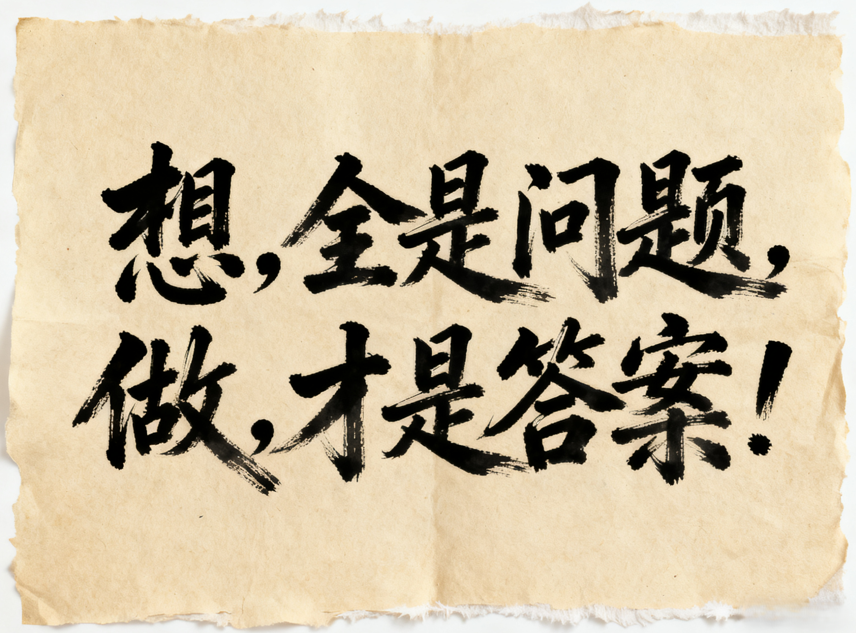 想,全是问题,
做,才是答案!